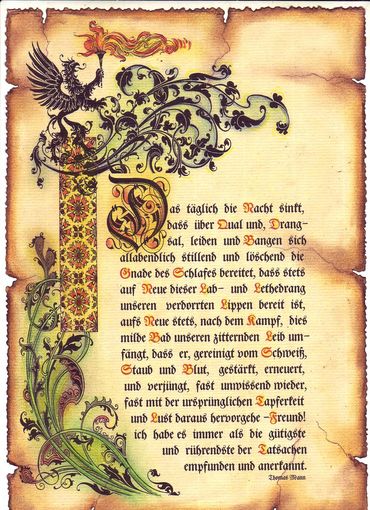 Das täglich die Nacht sinkt,
dass über Qual und, Drang-
sal, leiden und Bangen sich
allabendlich stillend und löschend die
Gnade des Schlafes bereitet, dass stets
auf Neue dieser Lab- und Lethedrang
unseren verdorrten Lippen bereit ist,
aufs Neue stets, nach dem Kampf, dies
milde Bad unseren zitternden Leib um-
fängt, dass er, gereinigt vom Schweiß,
Staub und Blut, gestärkt, erneuert,
und verjüngt, fast unwissend wieder,
fast mit der ursprünglichen Tapferkeit
und Lust daraus hervorgehe -Freund!
ich habe es immer als die gütigste
und rührendste der Tatsachen
empfunden und anerkannt.
Thomas Mann